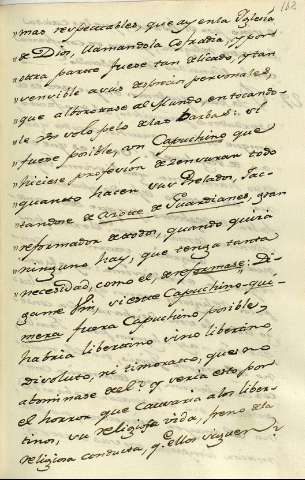 "mas respectables, que ay en la Iglesia
"de Dios, llamandola Cofradia; y por
"otra parte fuese tan delicado, y tan
"sensible a sus desprecios personales,
"que alborotase al Mundo, en tocando-
"le un solo pelo de las Barbas: si
"fuese posible, un Capuchino que
"hiciese profesion de censurar todo
"quanto hacen sus Prelados, jac-
"tandose de Azote de Guardianes, gran
"reformador de todos, quando quizá
"ninguno hay, que tenga tanta
"necesidad, como el, de reforma se: Di-
game Vm, si este Capuchino-qui-
mera fuera Capuchino posible, y
habria libertino sino libertino,
disoluto, ni timorato, que no
abominase de el? y seria esto por
el horror que causaria a los liber-
tinos, su religiosa vida, freno de la
religiosa conducta, q.e ellos siguen?